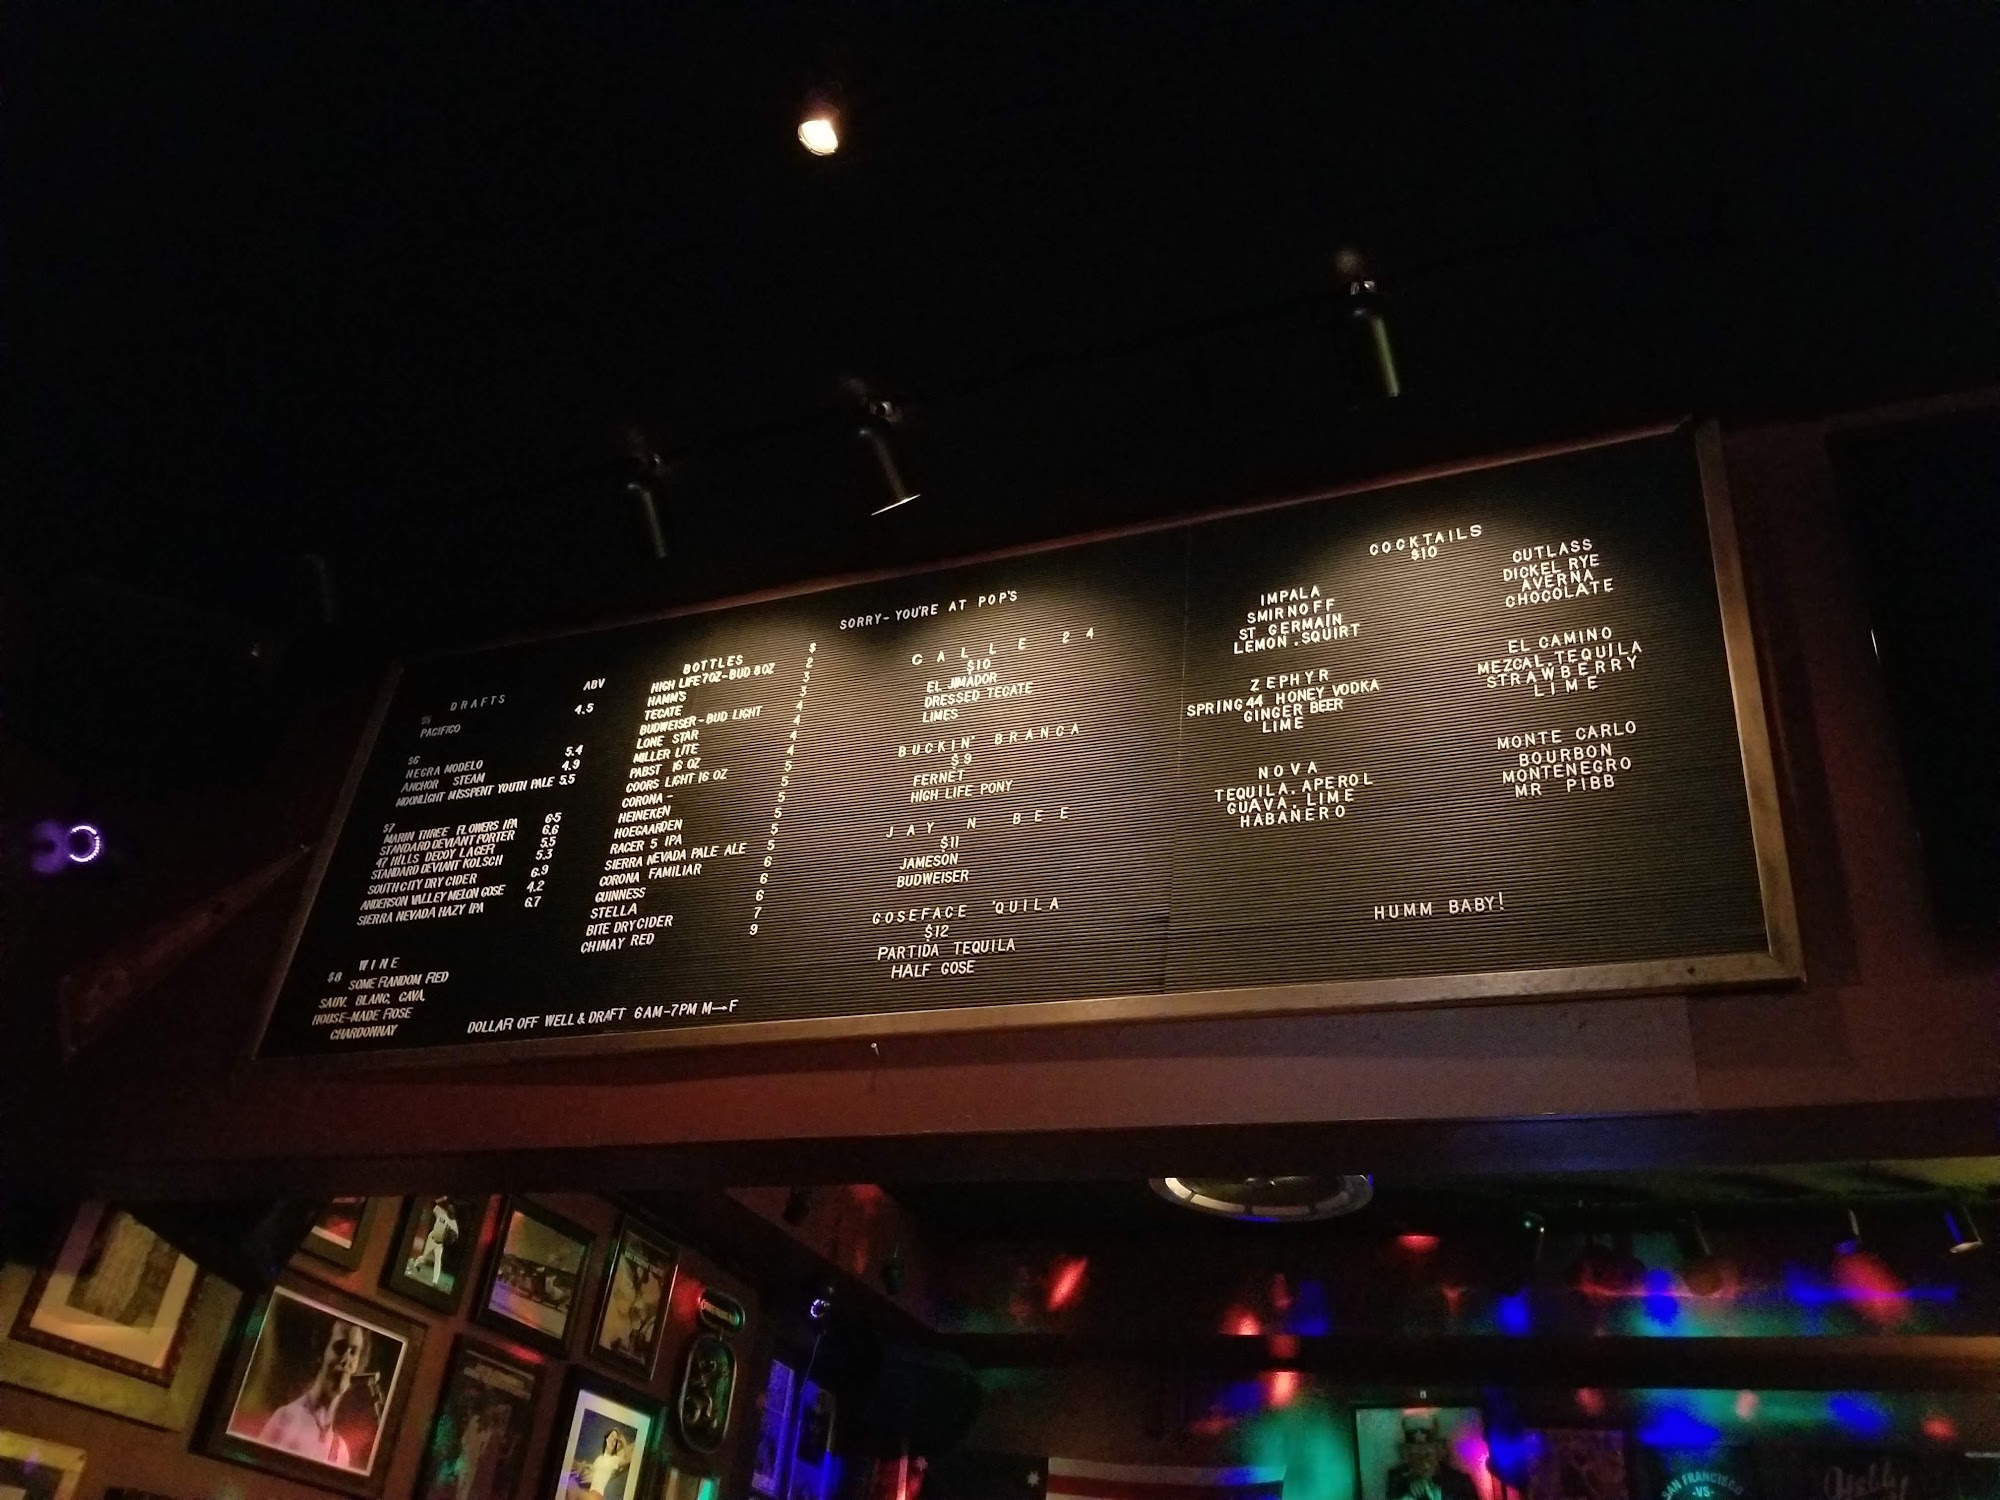 SORRY-YOU'RE AT POP'S
DRAFTS ABV
$5
PACIFICO 4.5
$6
NEGRA MODELO 5.4
ANCHOR STEAM 4.9
MOONLIGHT MISSPENT YOUTH PALE 5.5
$7
MARIN THREE FLOWERS IPA 6.5
STANDARD DEVIANT PORTER 6.6
47 HILLS DECOY LAGER 5.5
STANDARD DEVIANT KOLSCH 5.3
SOUTH CITY DRY CIDER 6.9
ANDERSON VALLEY MELON GOSE 4.2
SIERRA NEVADA HAZY IPA 6.7
WINE
$8 SOME RANDOM RED
SAUV. BLANC, CAVA,
HOUSE-MADE ROSE
CHARDONNAY
BOTTLES $
HIGH LIFE 7OZ-BUD 8OZ 2
HAMM'S 3
TECATE 3
BUDWEISER-BUD LIGHT 4
LONE STAR 4
MILLER LITE 4
PABST 16 OZ 4
COORS LIGHT 16 OZ 5
CORONA- 5
HEINEKEN 5
HOEGAARDEN 5
RACER 5 IPA 5
SIERRA NEVADA PALE ALE 5
CORONA FAMILIAR 6
GUINNESS 6
STELLA 6
BITE DRY CIDER 7
CHIMAY RED 9
DOLLAR OFF WELL & DRAFT 6AM-7PM M→F
CALLE 24
$10
EL JIMADOR
DRESSED TECATE
LIMES
BUCKIN' BRANCA
$9
FERNET
HIGH LIFE PONY
JAY N BEE
$11
JAMESON
BUDWEISER
GOSEFACE 'QUILA
$12
PARTIDA TEQUILA
HALF GOSE
COCKTAILS
$10
IMPALA
SMIRNOFF
ST GERMAIN
LEMON.SQUIRT
ZEPHYR
SPRING 44 HONEY VODKA
GINGER BEER
LIME
NOVA
TEQUILA.APEROL
GUAVA.LIME
HABANERO
CUTLASS
DICKEL RYE
AVERNA
CHOCOLATE
EL CAMINO
MEZCAL.TEQUILA
STRAWBERRY
LIME
MONTE CARLO
BOURBON
MONTENEGRO
MR PIBB
HUMM BABY!
SAN FRANCISCO
-VS-